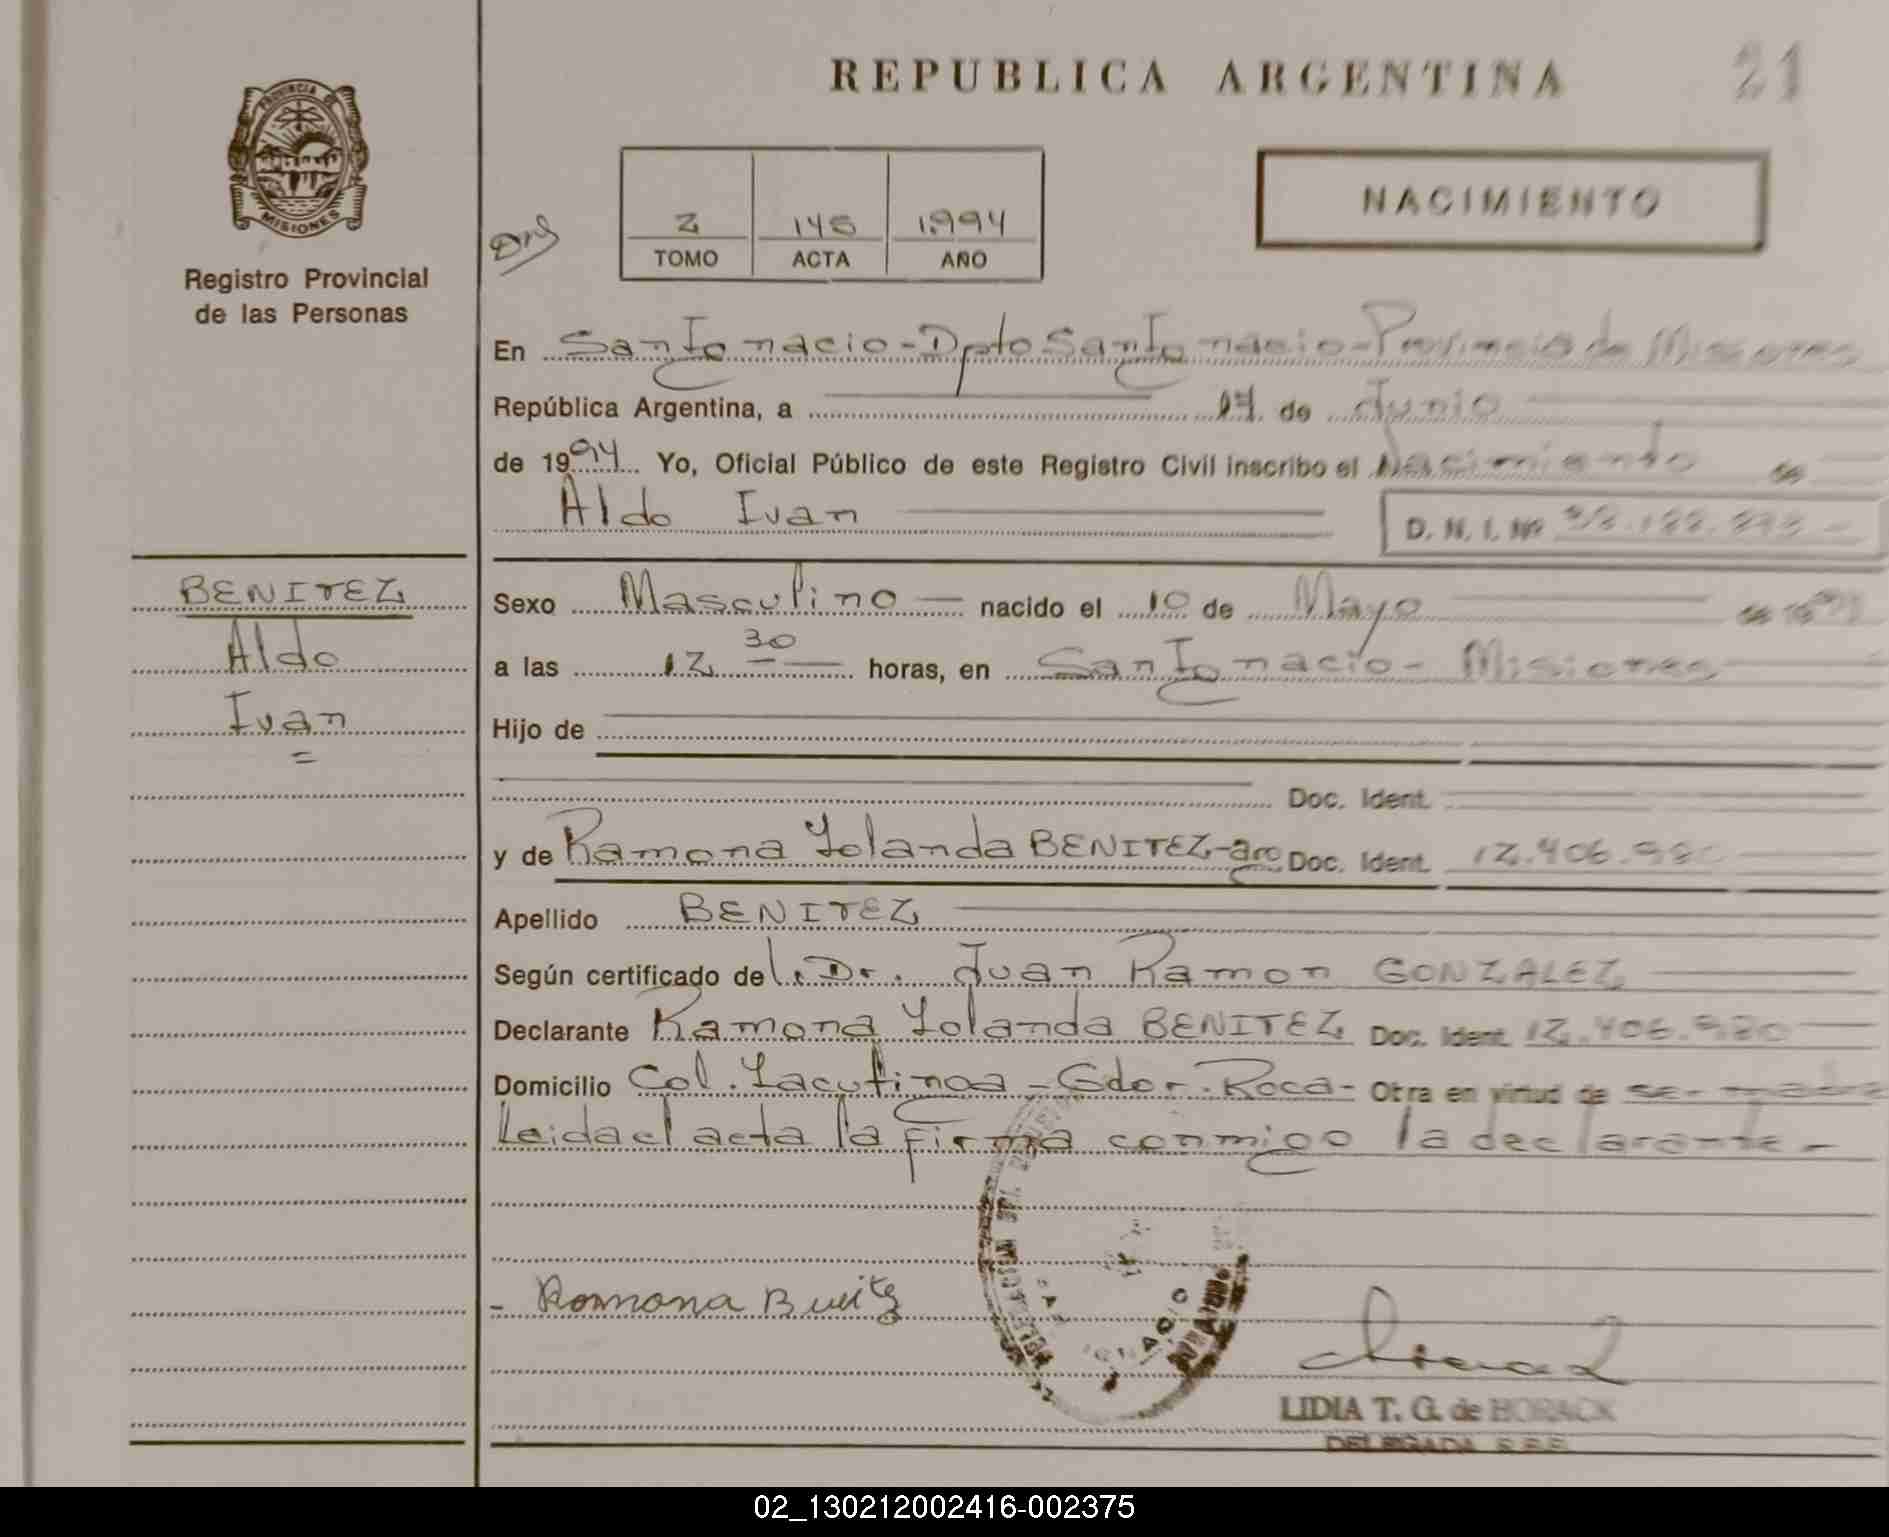 REPUBLICA ARGENTINA
21
PROVINCIA DE
MISIONES
Registro Provincial
de las Personas
2 145 1.994
TOMO ACTA AÑO
NACIMIENTO
En San Ignacio - Dpto San Ignacio - Provincia de Misiones
República Argentina, a 17 de Junio
de 1994 Yo, Oficial Público de este Registro Civil inscribo el Nacimiento de
Aldo Ivan D. N. I. Nº
BENITEZ
Aldo
Ivan
=
Sexo Masculino — nacido el 10 de Mayo de 19
a las 12 30 horas, en San Ignacio - Misiones
Hijo de
Doc. Ident.
y de Ramona Yolanda BENITEZ-arg Doc. Ident. 12.406.980
Apellido BENITEZ
Según certificado del. Dr. Juan Ramon GONZALEZ
Declarante Ramona Yolanda BENITEZ Doc. Ident. 12.406.980
Domicilio Col. Yacutinga - Gdor. Roca - Otra en virtud de ser madre
Leida el acta la firma conmigo la declarante -
- Ramona Bneitz
LIDIA T. G. de HORACK
DELEGADA
02_130212002416-002375